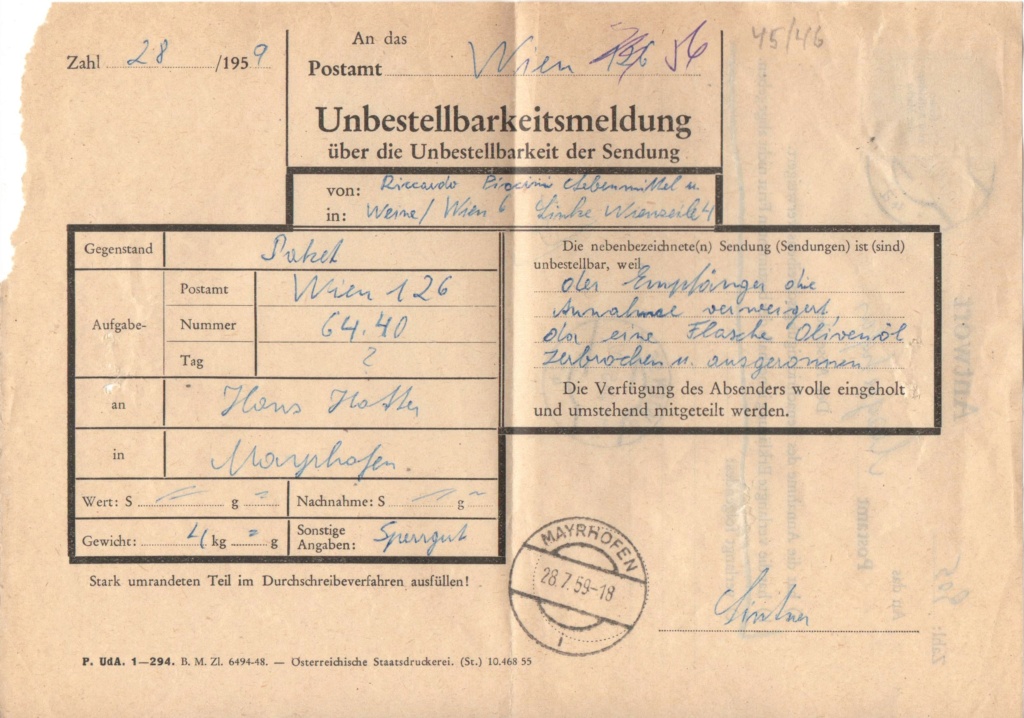 Zahl 28 /1959
An das
Postamt Wien 56
45/46
Unbestellbarkeitsmeldung
über die Unbestellbarkeit der Sendung
von: Riccardo Lebensmittel u
in: Weine/ Wien 6 Linke Wienzeile 4
Gegenstand Paket
Aufgabe-
Postamt Wien 126
Nummer 64.40
Tag ?
an Hans
in Mayrhofen.
Wert: S g Nachnahme: S g
Gewicht: 4 kg g Sonstige Angaben: Sperrgut
Die nebenbezeichnete(n) Sendung (Sendungen) ist (sind)
unbestellbar, weil
der Empfänger die
Annahme verweigert,
da eine Flasche Olivenöl
zerbrochen u. ausgeronnen
Die Verfügung des Absenders wolle eingeholt
und umstehend mitgeteilt werden.
Stark umrandeten Teil im Durchschreibeverfahren ausfüllen!
MAYRHOFEN
28.7.59-18
P. UdA. 1—294. B. M. Zl. 6494-48. — Österreichische Staatsdruckerei. (St.) 10.468 55